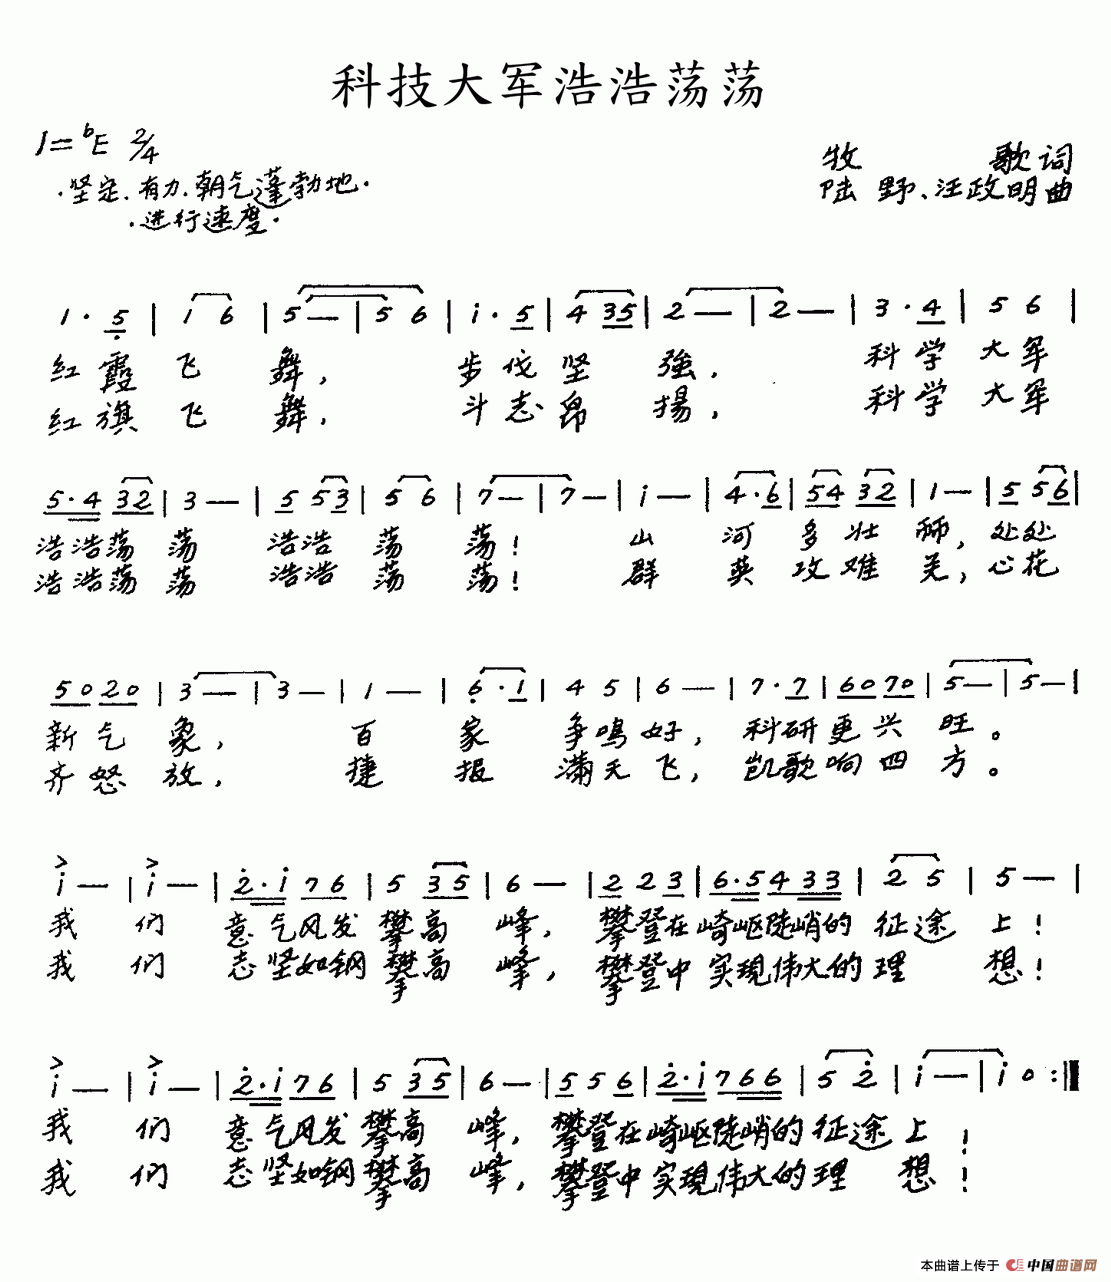 科技大军浩浩荡荡
1=ᵇE 2/4
·坚定、有力、朝气蓬勃地·
·进行速度·
牧 歌词
陆 野、汪政明曲
1· 5̣ | 1 6 | 5 — | 5 6 | i· 5 | 4 35 | 2 — | 2 — | 3· 4 | 5 6 |
红霞飞舞， 步伐坚強， 科学大军
红旗飞舞， 斗志昂揚， 科学大军
5·4 32 | 3 — | 5 53 | 5 6 | 7 — | 7 — | i — | 4·6 | 54 32 | 1 — | 5 56 |
浩浩荡荡 浩浩荡荡！ 山河多壮丽，处处
浩浩荡荡 浩浩荡荡！ 群英攻难关，心花
50 20 | 3 — | 3 — | 1 — | 6̣· 1 | 4 5 | 6 — | 7· 7 | 60 70 | 5 — | 5 — |
新气象， 百家争鸣好，科研更兴旺。
齐怒放， 捷报满天飞，凯歌响四方。
> >
i — | i — | 2̇·i 76 | 5 35 | 6 — | 2 2 3 | 6·5 433 | 2 5 | 5 — |
我们意气风发攀高峰，攀登在崎岖陡峭的征途上！
我们志坚如钢攀高峰，攀登中实現伟大的理想！
> >
i — | i — | 2̇·i 76 | 5 35 | 6 — | 5 5 6 | 2̇·i 766 | 5 2̇ | i — | i 0 :||
我们意气风发攀高峰，攀登在崎岖陡峭的征途上！
我们志坚如钢攀高峰，攀登中实現伟大的理想！
本曲谱上传于 中国曲谱网